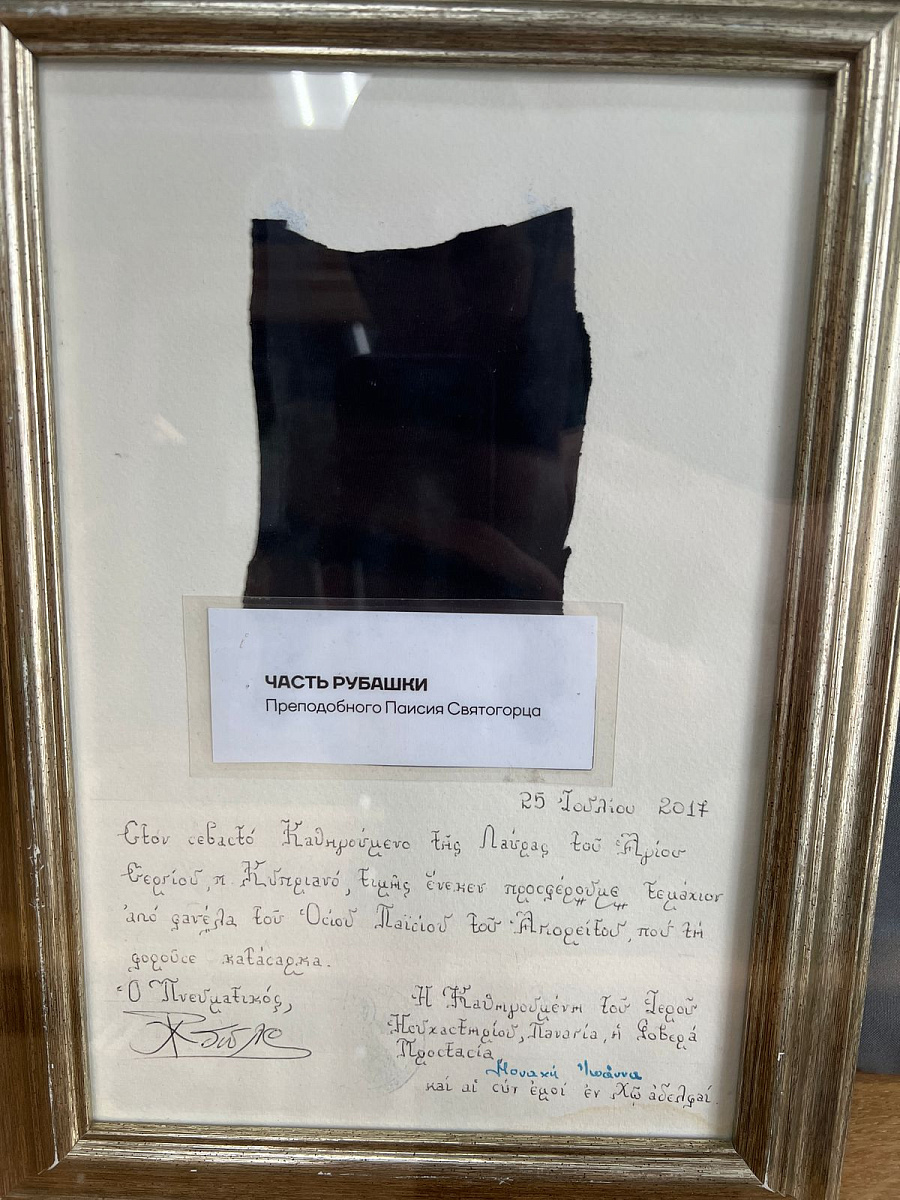 ЧАСТЬ РУБАШКИ
Преподобного Паисия Святогорца
25 Ἰουλίου 2017
Στον σεβαστό Καθηγούμενο τῆς Λαύρας τοῦ Ἁγίου
Σεργίου, π. Κυπριανό, τιμῆς ἕνεκεν προσφέρουμε τεμάχιον
ἀπό φανέλα τοῦ Ὁσίου Παϊσίου τοῦ Ἁγιορείτου, που τή
φοροῦσε κατάσαρκα.
Ὁ Πνευματικός,
Ἡ Καθηγουμένη τοῦ Ἱεροῦ
Ἡσυχαστηρίου, Παναγία, ἡ Φοβερά
Προστασία
Μοναχή Ἰωάννα
καί αἱ σύν ἐμοί ἐν Χῷ ἀδελφαί.